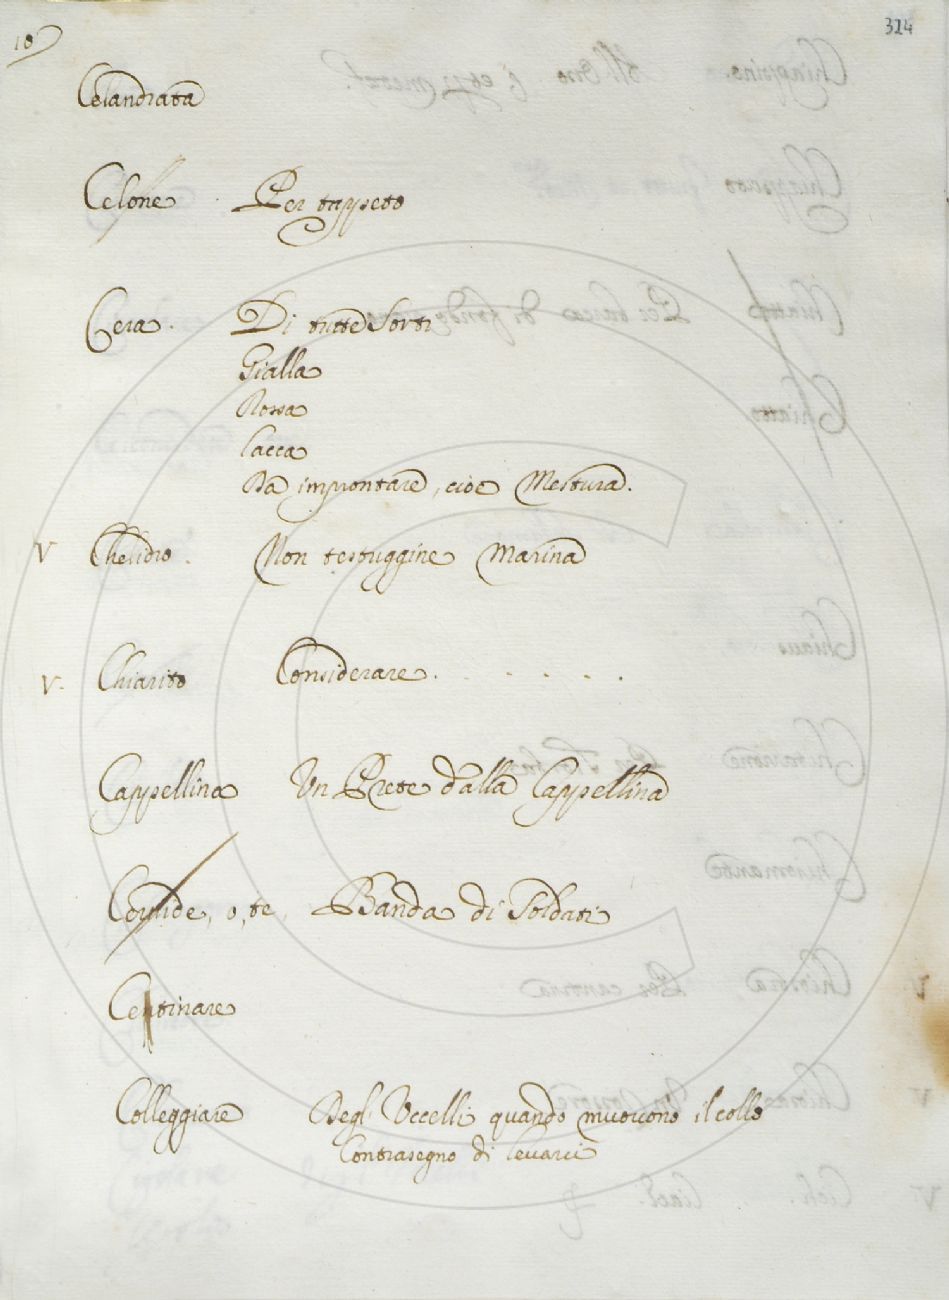 18
324
Celandrata
Celone . Per tappeto
Cera . Di tutte Sorti
Gialla
Rossa
lacca
Da improntare, cioè Mestura.
V Chelidro . Non testuggine Marina
V. Chiarito Considerare . . . . . .
Cappellina Un Prete dalla Cappellina
o, te, Banda di Soldati
Centinare
Colleggiare Degl' Uccelli quando muovono il collo
Contrasegno di levarsi